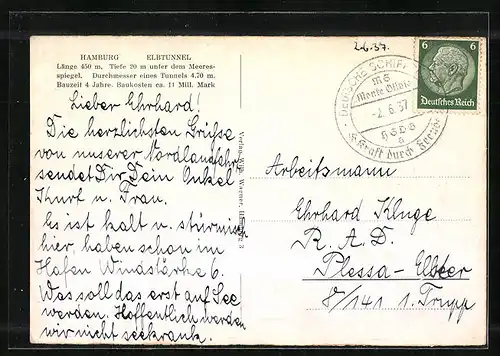 2.6.37.
HAMBURG ELBTUNNEL
Länge 450 m, Tiefe 20 m unter dem Meeres-
spiegel. Durchmesser eines Tunnels 4.70 m.
Bauzeit 4 Jahre. Baukosten ca. 11 Mill. Mark
Lieber Ehrhard!
Die herzlichsten Grüße
von unserer Nordlandfahrt
sendet Dir Dein Onkel
Kurt u. Frau.
Es ist kalt u. stürmisch
hier, haben schon im
Hafen Windstärke 6.
Was soll das erst auf See
werden. Hoffentlich werden
wir nicht seekrank.
Verlag Wilh. Werner,
DEUTSCHE SCHIFF
MS
Monte Olivia
-2.6.37
HSDG
a
Kraft durch Freude
6 6
Deutsches Reich
Arbeitsmann
Ehrhard Kluge
R. A. D.
Plessa-Elster
8/141 1. Trupp